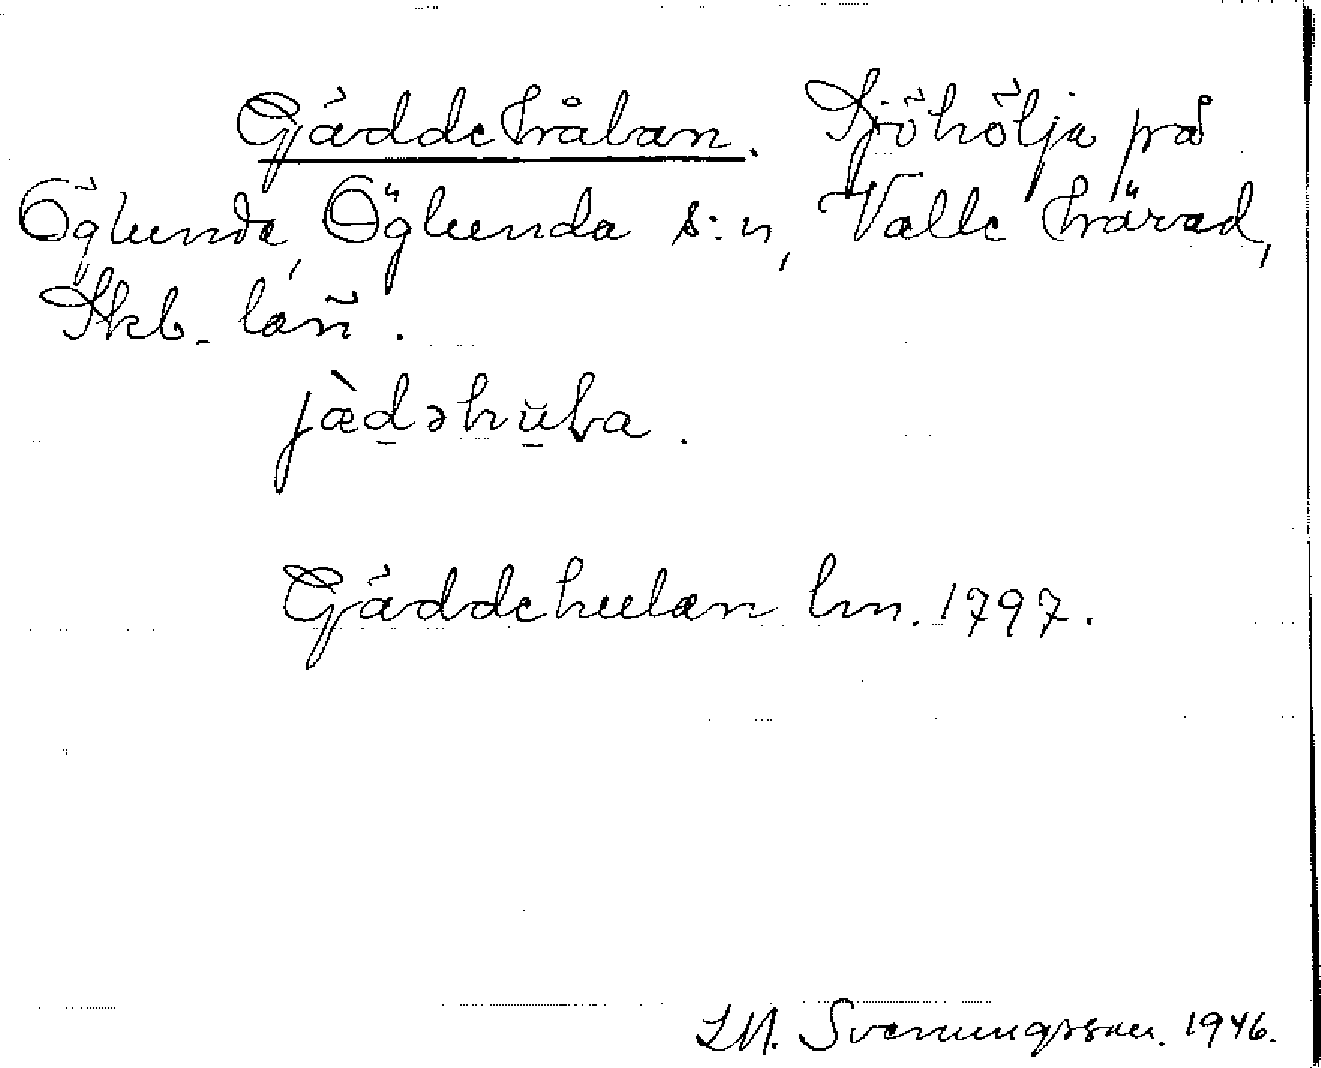 Gäddehålan. Sjöhölja på
Öglunda, Öglunda s:n, Valle härad,
Skb. län.
jædəhu̇la.
Gäddehulan lm. 1797.
Svenungsson. 1946.